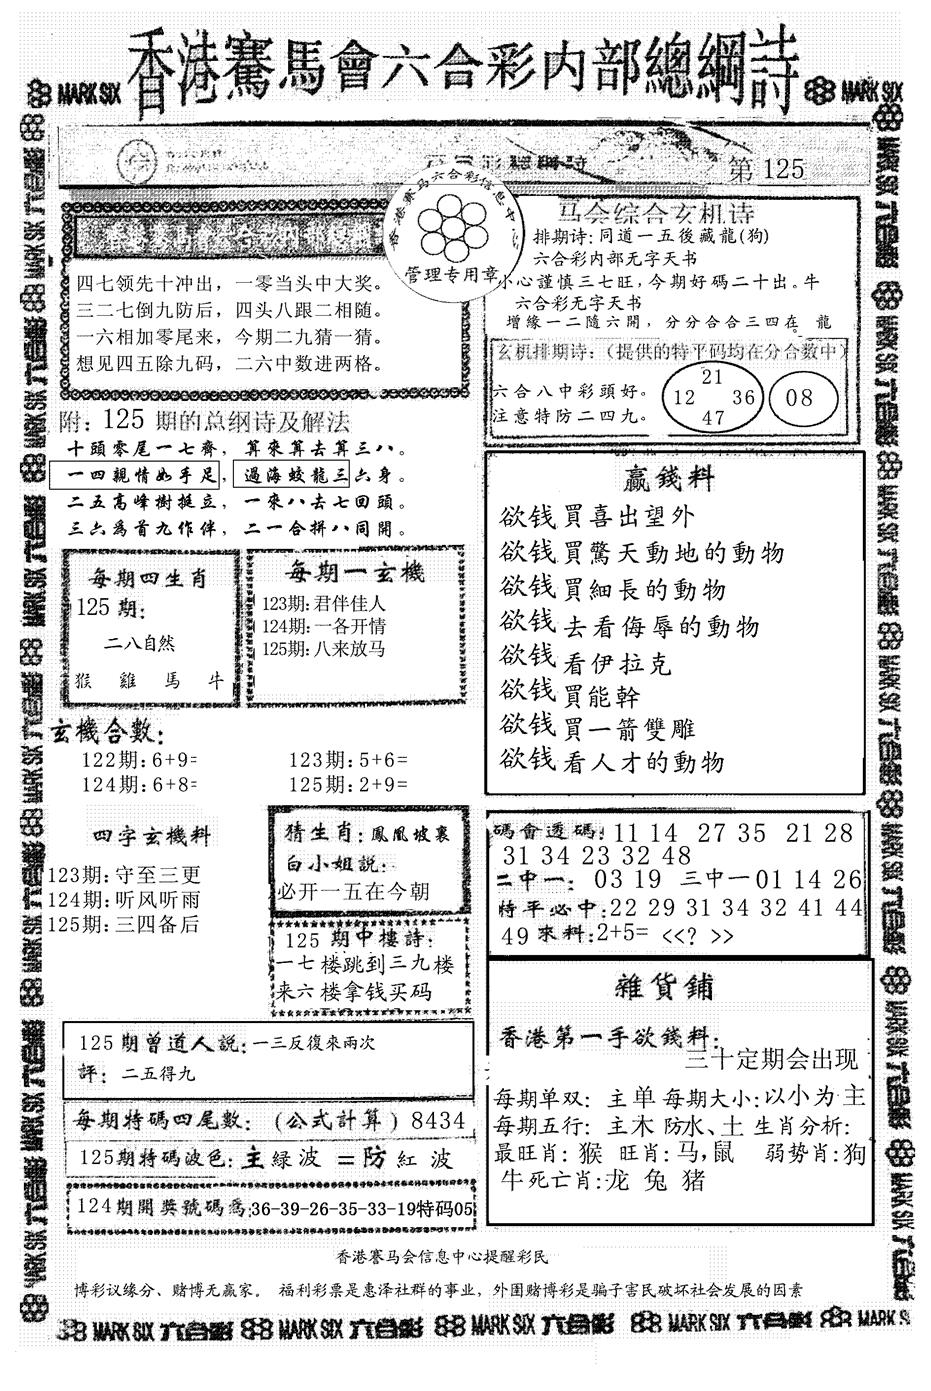 香港賽馬會六合彩内部總綱詩
MARK SIX
MARK SIX
第 125
香港赛马六合彩信息中心
管理专用章
四七领先十冲出，一零当头中大奖。
三二七倒九防后，四头八跟二相随。
一六相加零尾来，今期二九猜一猜。
想见四五除九码，二六中数进两格。
马会综合玄机诗
排期诗:同道一五後藏龍(狗)
六合彩内部无字天书
小心謹慎三七旺,今期好碼二十出。牛
六合彩无字天书
增缘一二隨六開，分分合合三四在。龍
玄机排期诗:（提供的特平码均在分合数中）
六合八中彩頭好。
注意特防二四九。
21
12 36
47
08
附: 125 期的总纲诗及解法
十頭零尾一七齊，算來算去算三八。
一四親情如手足，過海蛟龍三六身。
二五高峰樹挺立，一來八去七回頭。
三六為首九作伴，二一合拼八同開。
每期四生肖
125 期:
二八自然
猴 雞 馬 牛
每期一玄機
123期:君伴佳人
124期:一各开情
125期:八来放马
赢錢料
欲钱買喜出望外
欲钱買驚天動地的動物
欲钱買細長的動物
欲钱去看侮辱的動物
欲钱看伊拉克
欲钱買能幹
欲钱買一箭雙雕
欲钱看人才的動物
玄機合數:
122期:6+9= 123期:5+6=
124期:6+8= 125期:2+9=
四字玄機料
123期:守至三更
124期:听风听雨
125期:三四备后
猜生肖:鳳凰坡裏
白小姐説:
必开一五在今朝
125 期中樓詩:
一七楼跳到三九楼
来六楼拿钱买码
碼會透碼: 11 14 27 35 21 28
31 34 23 32 48
二中一: 03 19 三中一 01 14 26
特平必中:22 29 31 34 32 41 44
49 來料:2+5= <<? >>
雜貨鋪
香港第一手欲錢料:
三十定期会出现
每期单双: 主单 每期大小:以小为主
每期五行: 主木 防水、土 生肖分析:
最旺肖: 猴 旺肖: 马,鼠 弱势肖:狗
牛 死亡肖:龙 兔 猪
125期曾道人説:一三反復來兩次
評: 二五得九
每期特碼四尾數:（公式計算）8434
125期特碼波色:主綠波 =防 紅 波
124期開獎號碼爲:36-39-26-35-33-19特码05
香港赛马会信息中心提醒彩民
博彩议缘分、赌博无赢家。 福利彩票是惠泽社群的事业，外围赌博彩是骗子害民破坏社会发展的因素
MARK SIX 六合彩 MARK SIX 六合彩 MARK SIX 六合彩 MARK SIX 六合彩 MARK SIX